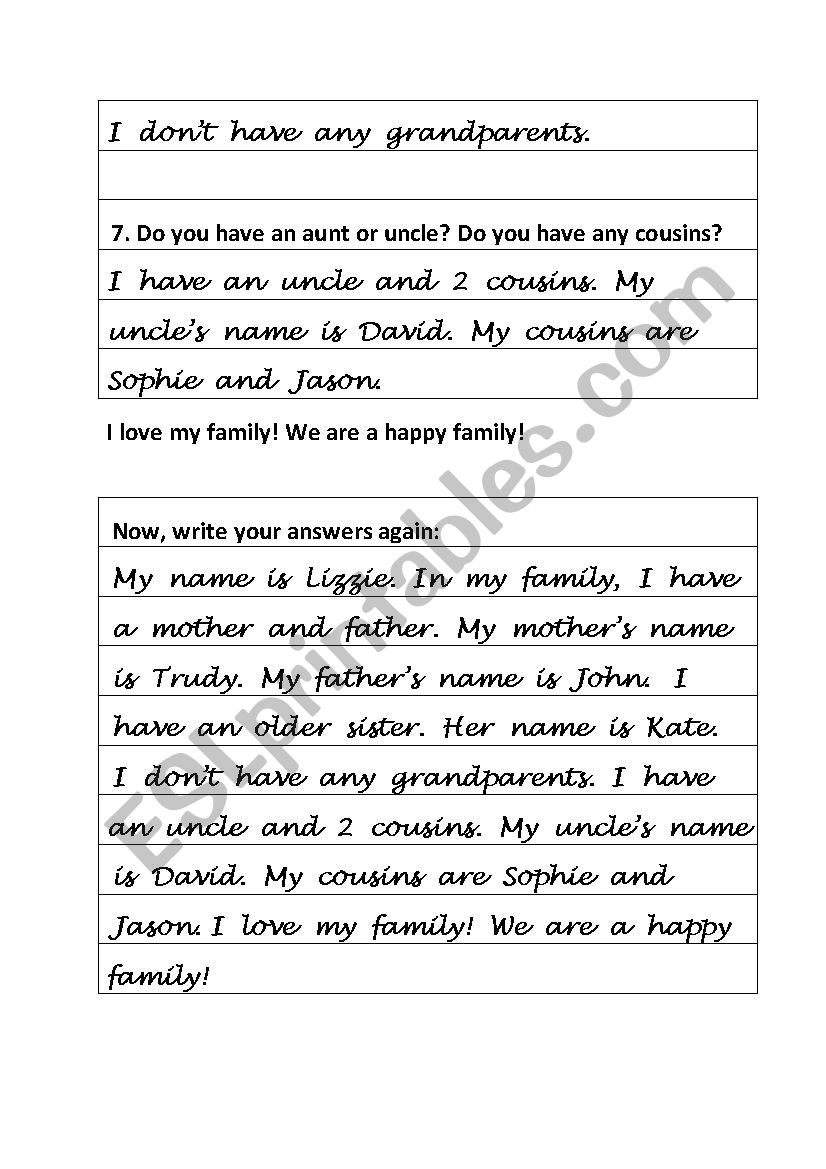 I don't have any grandparents.
7. Do you have an aunt or uncle? Do you have any cousins?
I have an uncle and 2 cousins. My
uncle's name is David. My cousins are
Sophie and Jason.
I love my family! We are a happy family!
Now, write your answers again:
My name is Lizzie. In my family, I have
a mother and father. My mother's name
is Trudy. My father's name is John. I
have an older sister. Her name is Kate.
I don't have any grandparents. I have
an uncle and 2 cousins. My uncle's name
is David. My cousins are Sophie and
Jason. I love my family! We are a happy
family!
ESLprintables.com